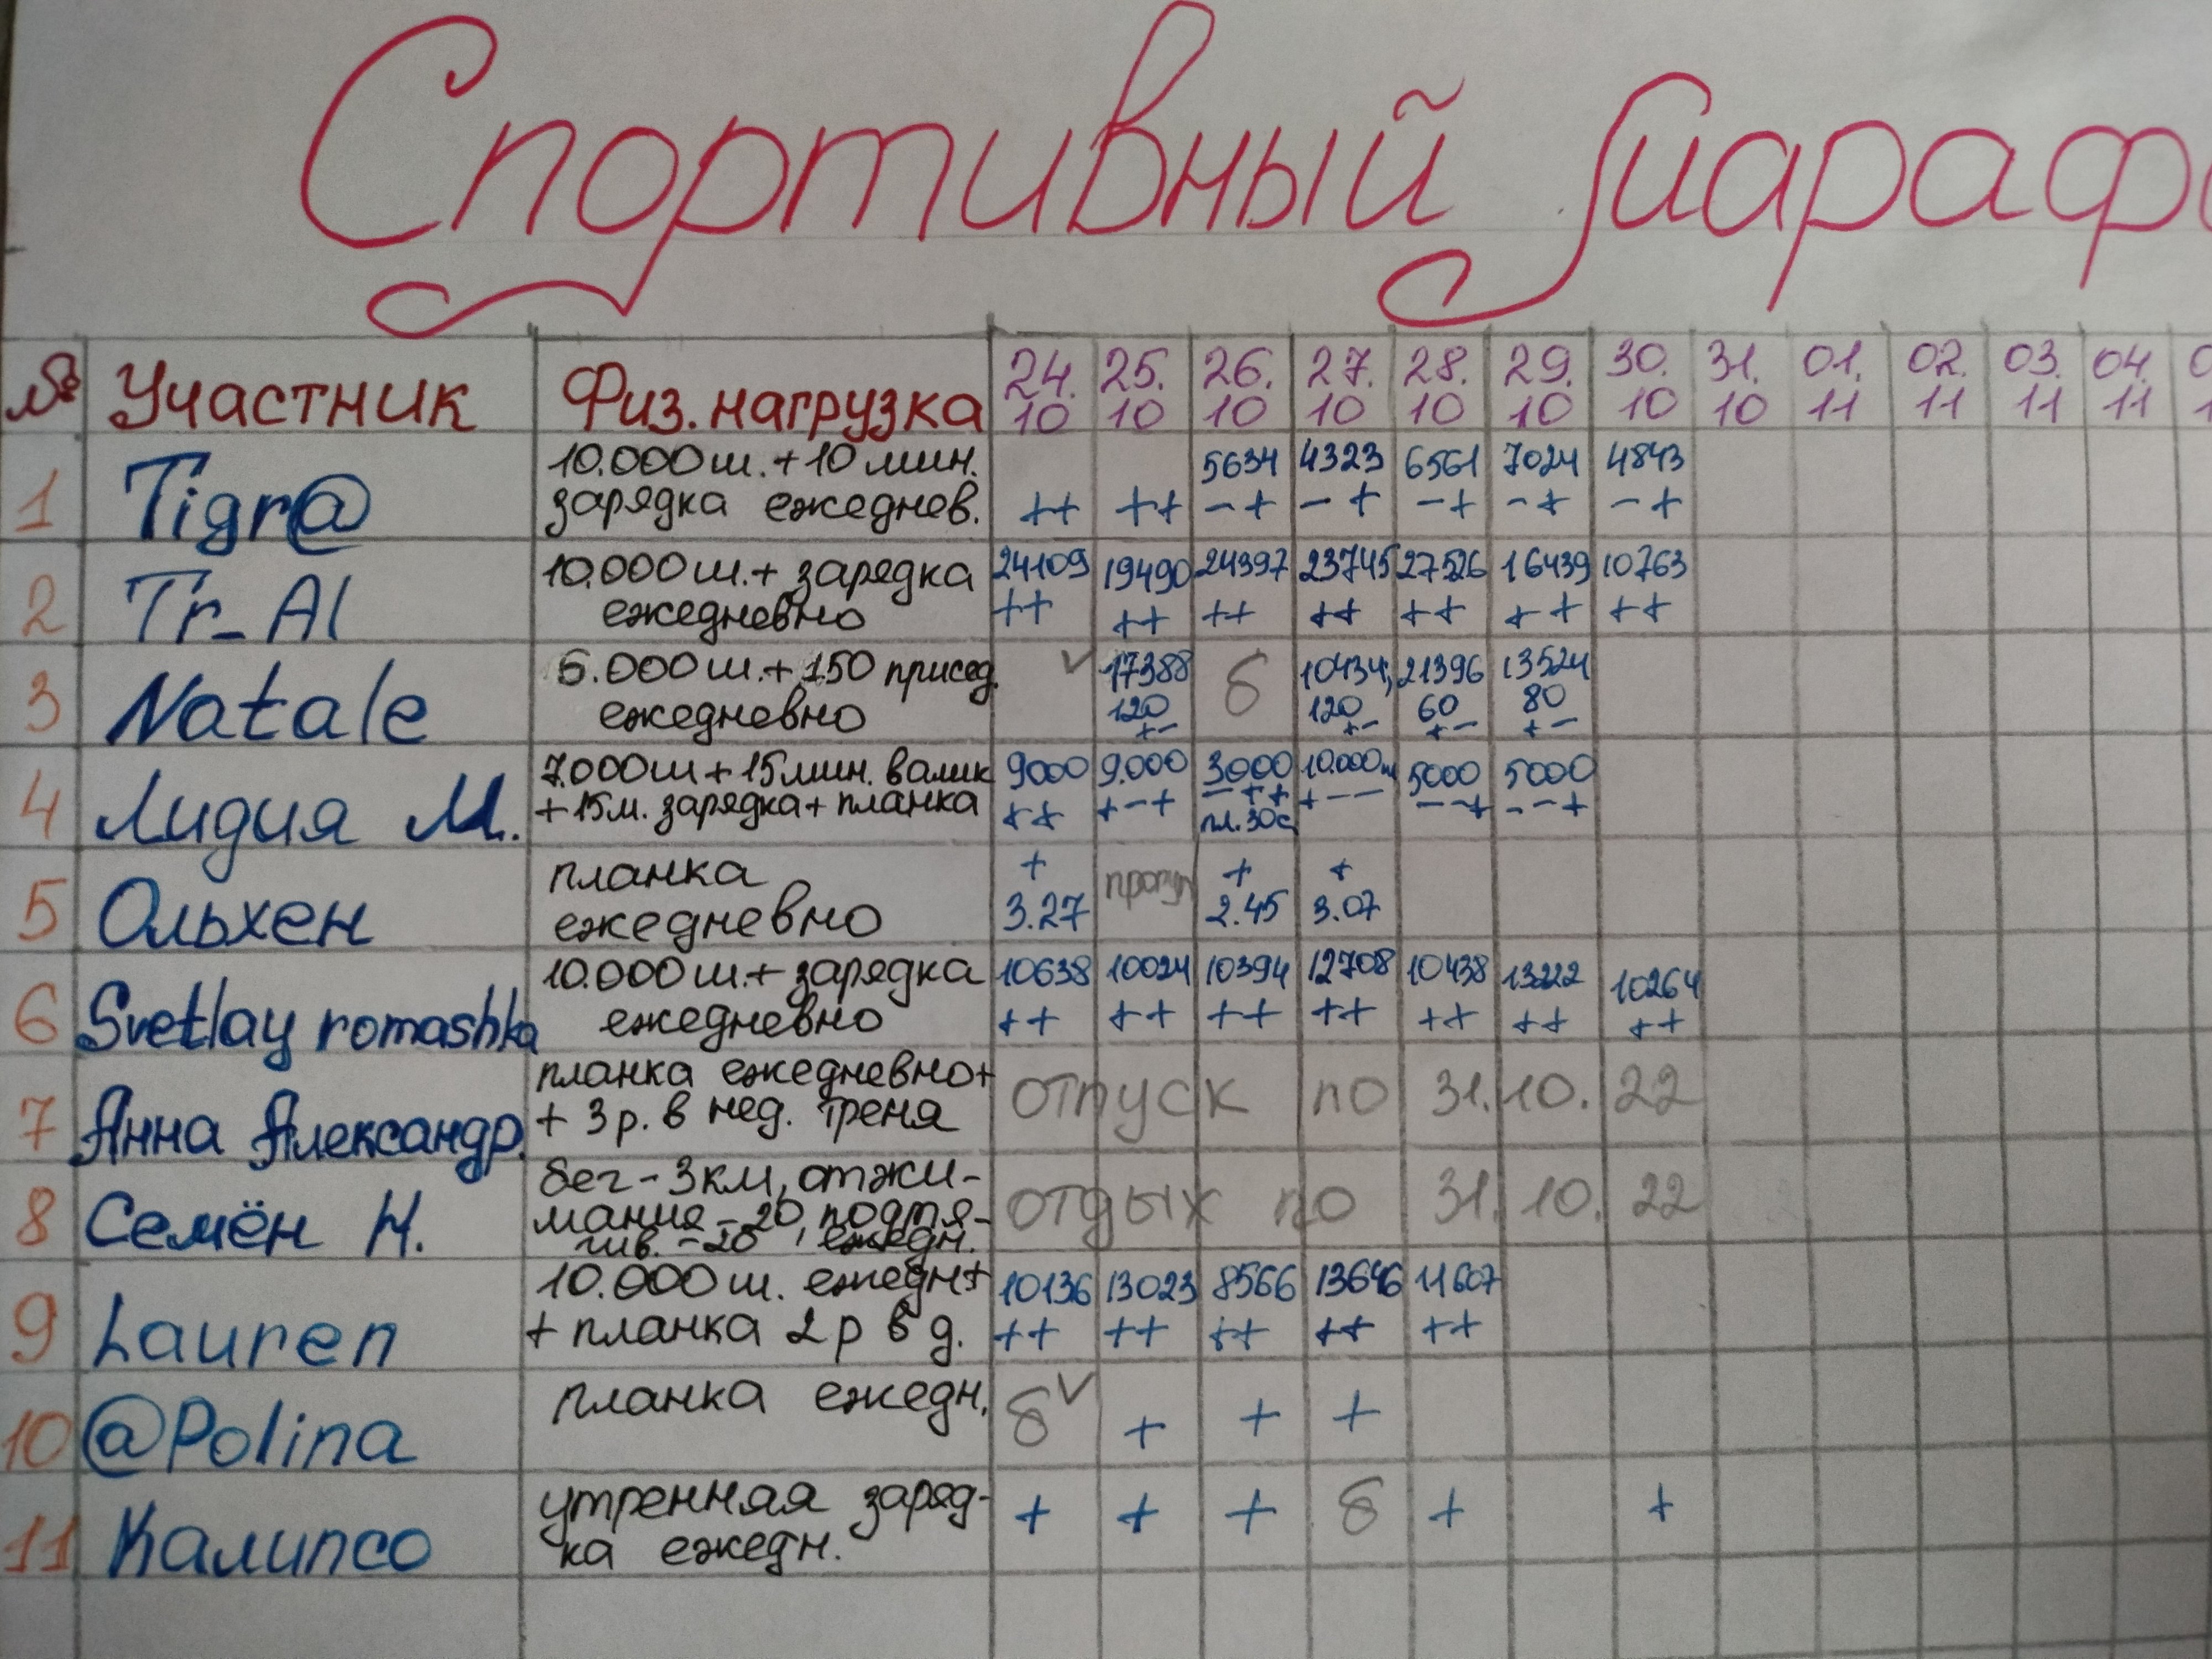 Спортивный Мараф
№ Участник Физ. нагрузка 24. 25. 26. 27. 28. 29. 30. 31. 01. 02. 03. 04.
10 10 10 10 10 10 10 10 11 11 11 11
1 Tigr@ 10.000 ш. + 10 мин. 5634 4323 6561 7024 4843
зарядка ежеднев. ++ ++ -+ -+ -+ -+ -+
2 Tr_Al 10.000 ш. + зарядка 24109 19490 24397 23745 27526 16439 10763
ежедневно ++ ++ ++ ++ ++ ++ ++
3 Natale 6.000 ш. + 150 присед. 17388 б 10434, 21396 13524
ежедневно 120 120 60 80
+- +- +- +-
4 Лидия М. 7.000 ш + 15 мин. валик 9000 9.000 3000 10.000ш 5000 5000
+ 15 м. зарядка + планка ++ +-+ -++ +-- --+ --+
пл. 30с
5 Ольхен планка + прогул + +
ежедневно 3.27 2.45 3.07
6 Svetlay romashka 10.000 ш. + зарядка 10638 10024 10394 12708 10438 13222 10264
ежедневно ++ ++ ++ ++ ++ ++ ++
7 Анна Александр. планка ежедневно + отпуск по 31.10.22
+ 3 р. в нед. треня
8 Семён Н. бег - 3 км, отжи- отдых по 31.10.22
мания - 20, подтя-
гив. - 20, ежедн.
9 Lauren 10.000 ш. ежедн + 10136 13023 8566 13646 11607
+ планка 2 р в д. ++ ++ ++ ++ ++
10 @Polina планка ежедн. б + + +
11 Калипсо утренняя заряд- + + + б + +
ка ежедн.